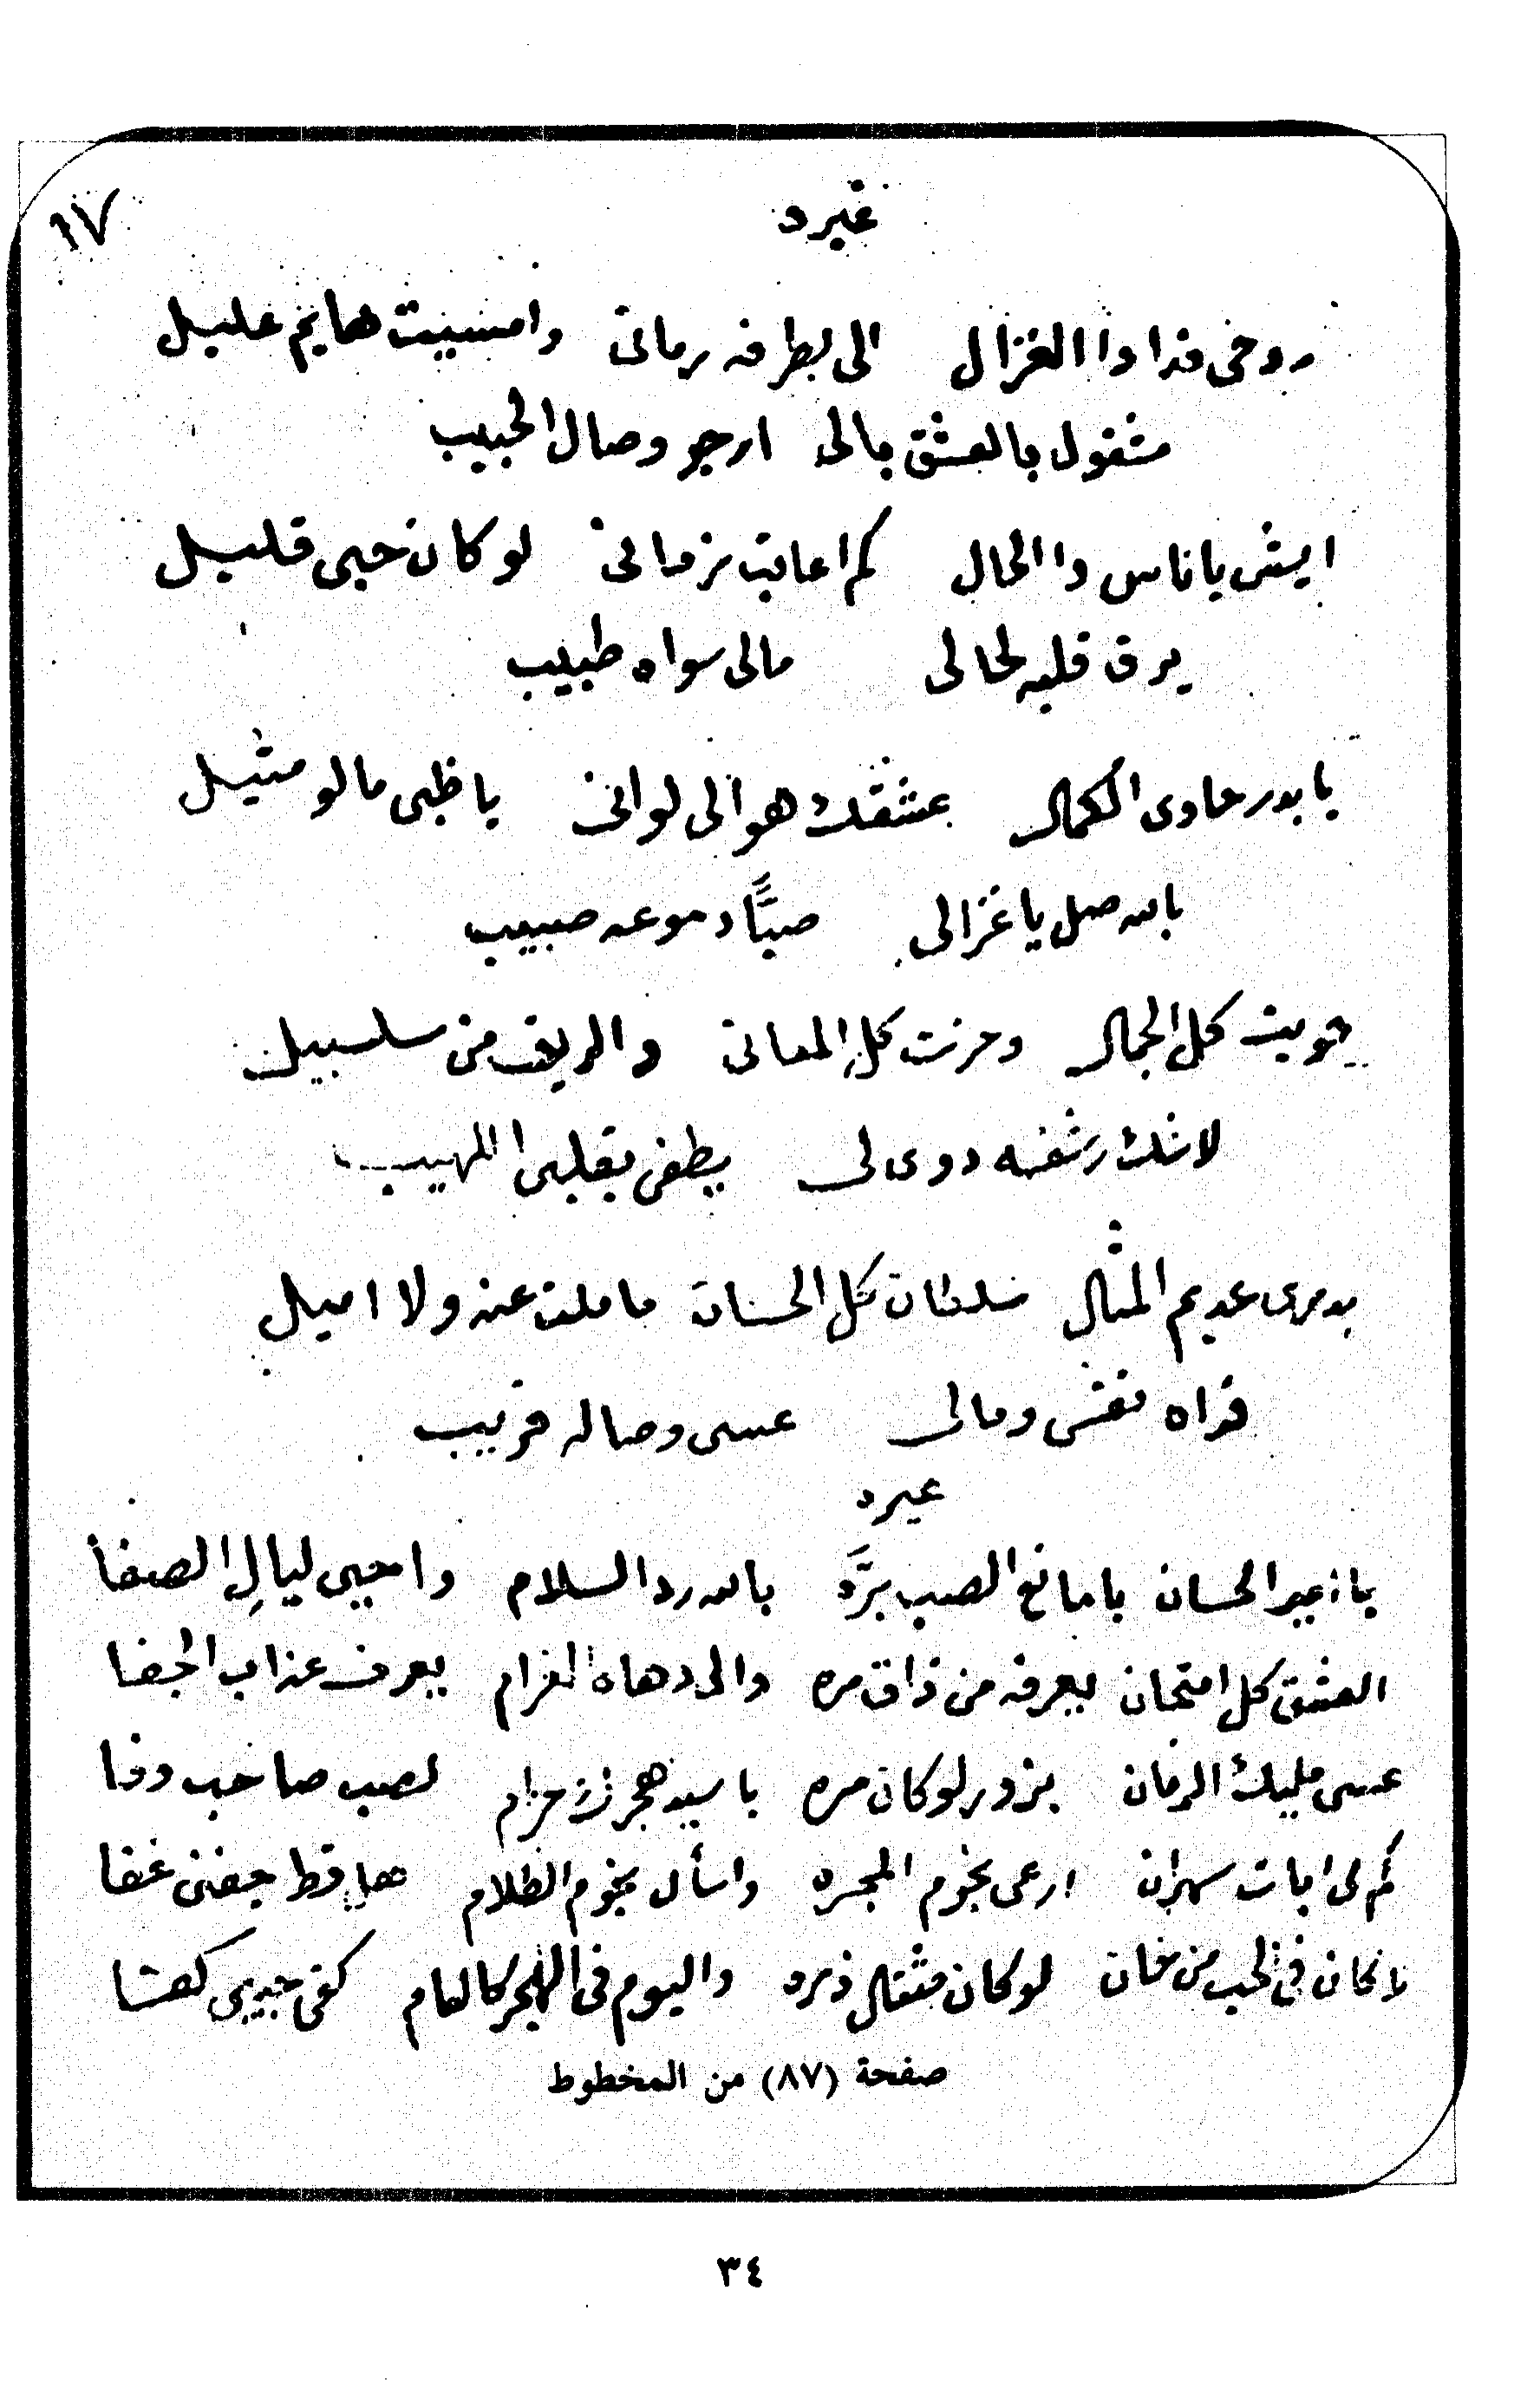 غيره
٨٧
روحى فدا دا الغزال الى بطرفه رمانى وامسيت هايم عليل
مشغول بالعشق بالى ارجو وصال الحبيب
ايش ياناس دا الحال كم اعاتب زمانى لو كان حبى قليل
يرق قلبه لحالى مالى سواه طبيب
يا بدر حاوى الكمال عشقك هوالى لوانى يا ظبى مالو مثيل
بالله صل يا غزالى صبًّا دموعه صبيب
حويت كل الجمال وحزت كل المعانى والريق من سلسبيل
لا شك رشفه دوى لى يطفى بقلبى اللهيب
بدرى عديم المثال سلطان كل الحسان ما ملت عنه ولا اميل
فداه نفسى ومالى عسى وصاله قريب
غيره
يا امير الحسان يا مانع الصب برَّه بالله رد السلام واحيى ليالِ الصفا
العشق كل امتحان يعرفه من ذاق مره والى دهاه الغرام يعرف عذاب الجفا
عسى مليك الزمان يزور لو كان مره يا سيد هجرك حرام لصب صاحب وفا
كم لى ابات سهران ارعى نجوم المجره واسأل نجوم الظلام هل قط جفنى غفا
لا كان فى الحب من خان لو كان مثقال ذره واليوم فى الهجر كالعام كفى حبيبى كفا
صفحة (٨٧) من المخطوط
٣٤